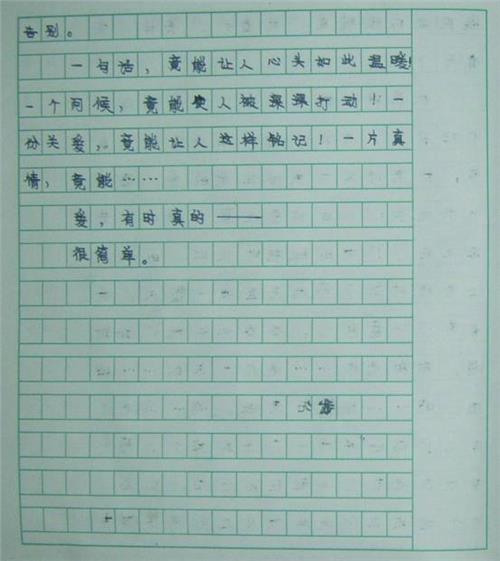 告别。
一句话，竟能让人心头如此温暖！
一个问候，竟能使人被深深打动！一
份关爱，竟能让人这样铭记！一片真
情，竟能……
爱，有时真的——
很简单。